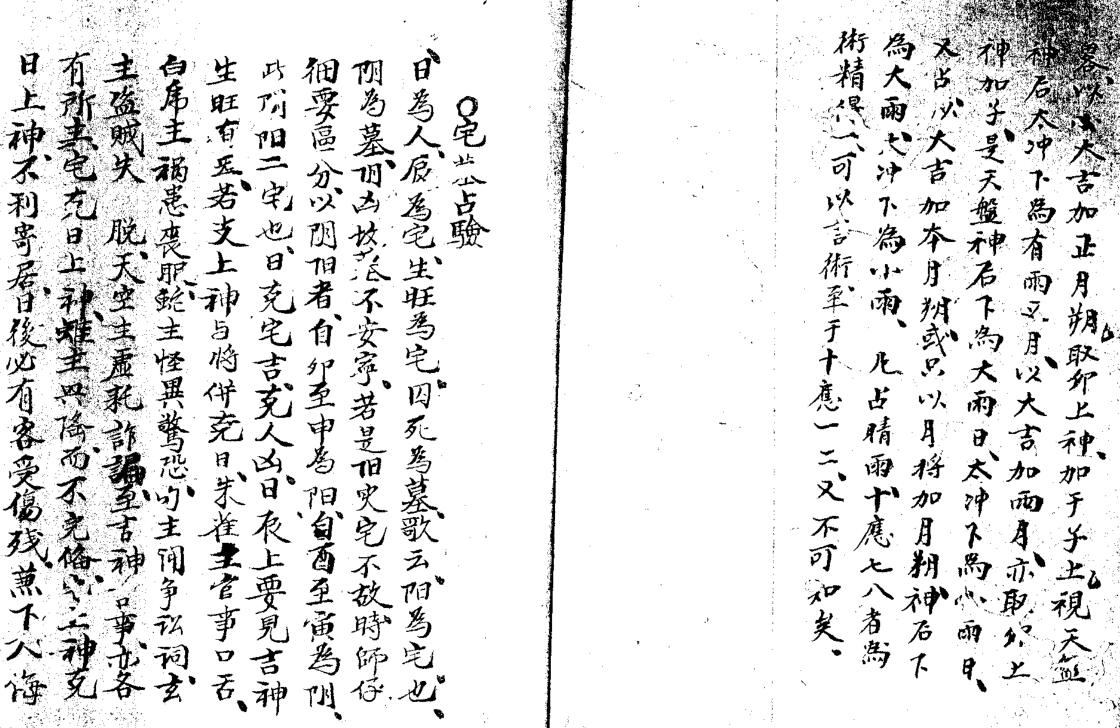 畧以大吉加正月朔取卯上神加于子上視天盤
神后太冲下為有雨又月以大吉加丙月亦取卯上
神加子是天盤神后下為大雨日太冲下為小雨日
又占以大吉加本月朔或只以月將加月朔神后下
為大雨太冲下為小雨凡占晴雨十應七八者為
術精俱一可以言術至于十應一二又不可知矣
宅墓占驗
日為人辰為宅生旺為宅囚死為墓歌云阳為宅也
阴為墓阴凶故茫不安寧若是旧宅不故時師仔
細要區分以阴阳者自卯至申為阳自酉至寅為阴
此阴阳二宅也日克宅吉克人凶日辰上要見吉神
生旺有气若支上神与將併克日朱雀主官事口舌
白虎主禍患喪服蛇主怪異驚恐勾主鬪争讼詞玄
主盗賊失脱天空主虛耗詐至吉神吉事亦各
有所主宅克日上神雖主興隆而不完俻上神克
日上神不利寄居日後必有客受傷残兼下人侮